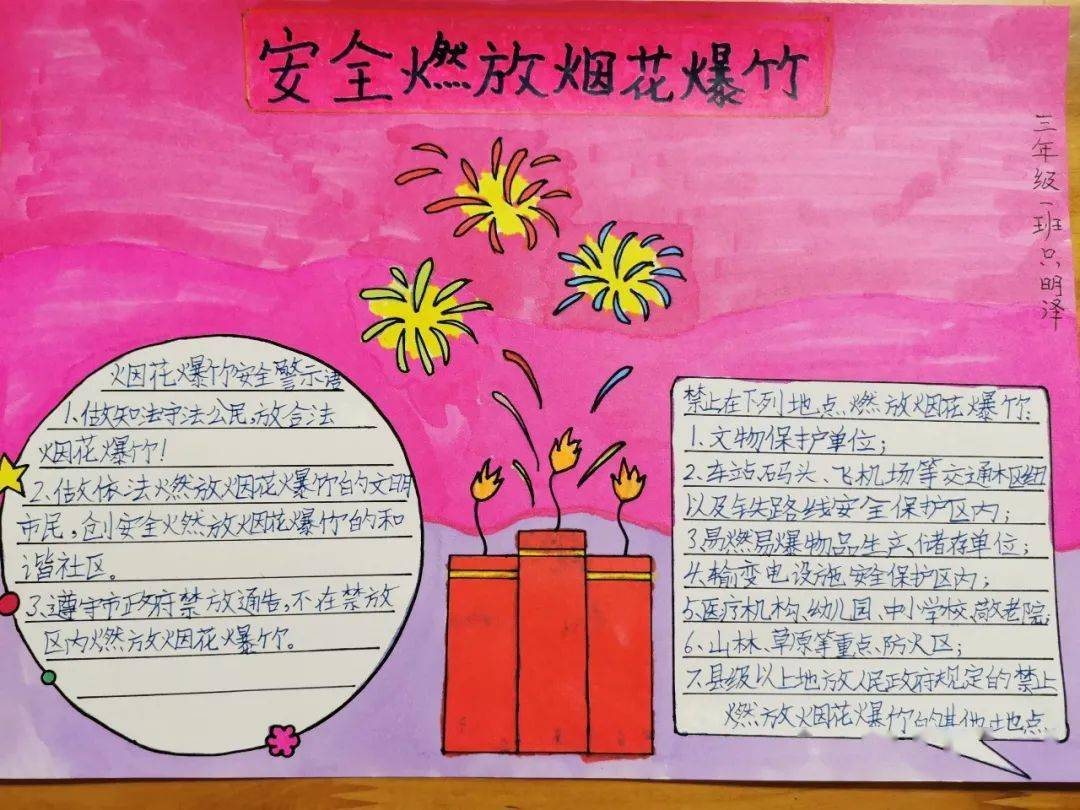 安全燃放烟花爆竹
三年级一班只明泽
烟花爆竹安全警示语
1.做知法守法公民,放合法
烟花爆竹!
2.做依法燃放烟花爆竹的文明
市民,创安全燃放烟花爆竹的和
谐社区。
3.遵守市政府禁放通告,不在禁放
区内燃放烟花爆竹。
禁止在下列地点、燃放烟花爆竹:
1.文物保护单位;
2.车站、码头、飞机场等交通枢纽
以及铁路线安全保护区内;
3.易燃易爆物品生产、储存单位;
4.输变电设施安全保护区内;
5.医疗机构、幼儿园、中小学校、敬老院;
6、山林、草原等重点、防火区;
7.县级以上地方人民政府规定的禁止
燃放烟花爆竹的其他地点